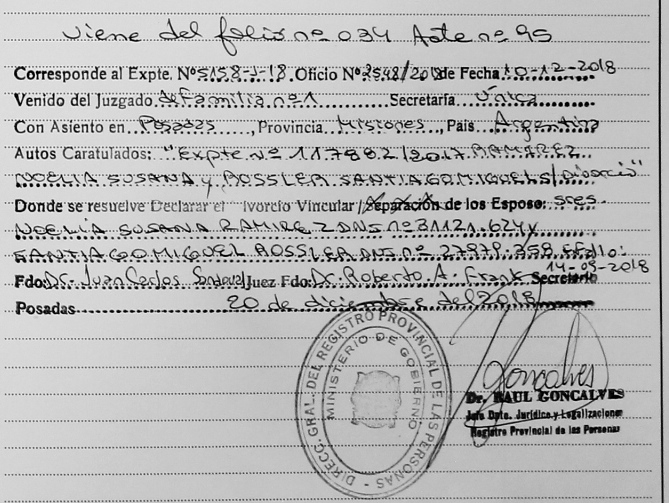 viene del folio nº 034 Acta nº 95
Corresponde al Expte. Nº 5158-J-18. Oficio Nº 3548/2018 de Fecha 10-12-2018
Venido del Juzgado de Familia nº 1 Secretaría Única
Con Asiento en Posadas, Provincia Misiones, País Argentina
Autos Caratulados: "Expte Nº 117882/2017 RAMIREZ
NOELIA SUSANA y ROSSLER SANTIAGO MIGUEL S/Divorcio"
Donde se resuelve Declarar el ivorcio Vincular / Separación de los Esposo: sres.
NOELIA SUSANA RAMIREZ DNI nº 31.121.624 y
SANTIAGO MIGUEL ROSSLER DNI nº 27.979.358. Fallo:
14-09-2018
Fdo: Dr. Juan Carlos Juez Fdo: Dr. Roberto A. Frank Secretario
Posadas 20 de diciembre del 2018
DIRECC. GRAL. DEL REGISTRO PROVINCIAL DE LAS PERSONAS
MINISTERIO DE GOBIERNO
Goncalves
Dr. RAUL GONCALVES
Jefe Dpto. Jurídico y Legalizaciones
Registro Provincial de las Personas